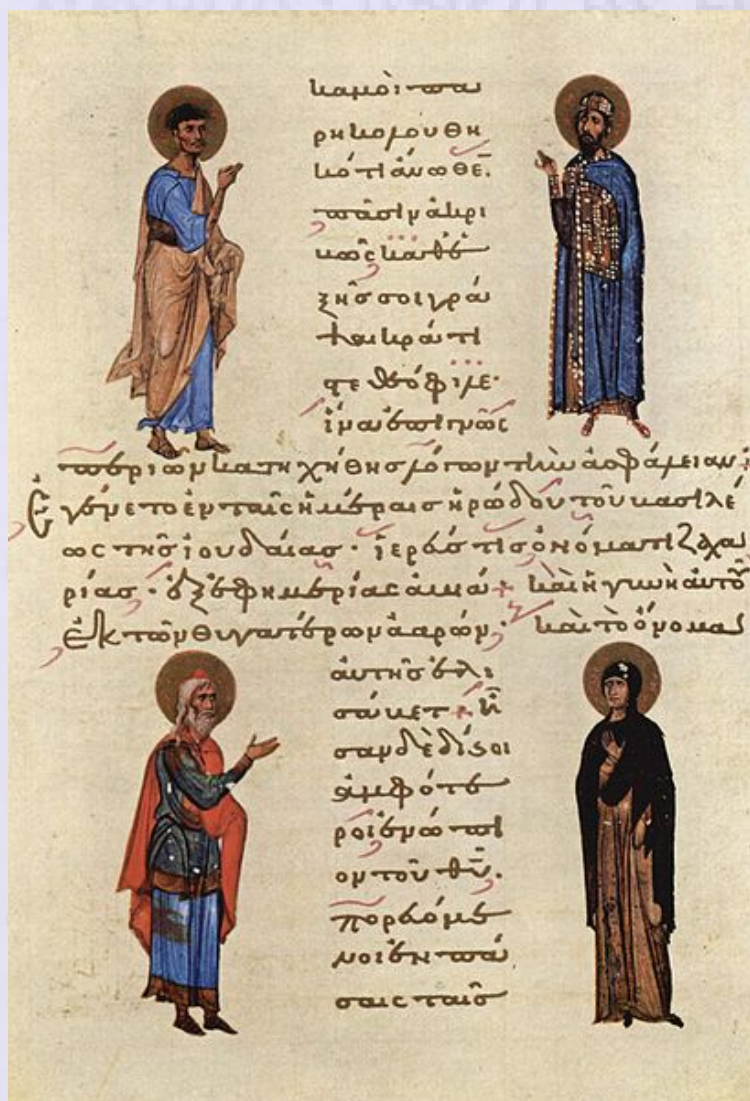 κἀμοὶ πα
ρηκολουθη
κότι ἄνωθε̄.
πᾶσιν ἀκρι
βῶς καθε
ξῆς σοι γρά
ψαι κράτι
στε θεόφιλε·
ἵνα ἐπιγνῷς
περὶ ὧν κατηχήθης λόγων τὴν ἀσφάλειαν:
Ἐγένετο ἐν ταῖς ἡμέραις ἡρώδου τοῦ βασιλέ
ως τῆς ἰουδαίας· ἱερεύς τις ὀνόματι ζαχα
ρίας· ἐξ ἐφημερίας ἀβιά + καὶ ἡ γυνὴ αὐτοῦ
ἐκ τῶν θυγατέρων ἀαρών· καὶ τὸ ὄνομα
αὐτῆς ἐλι
σάβετ + ἦ
σαν δὲ δίϗοι
ἀμφότε
ροι ἐνώπι
ον τοῦ θῦ.
πορευόμε
νοι ἐν πά
σαις ταῖς